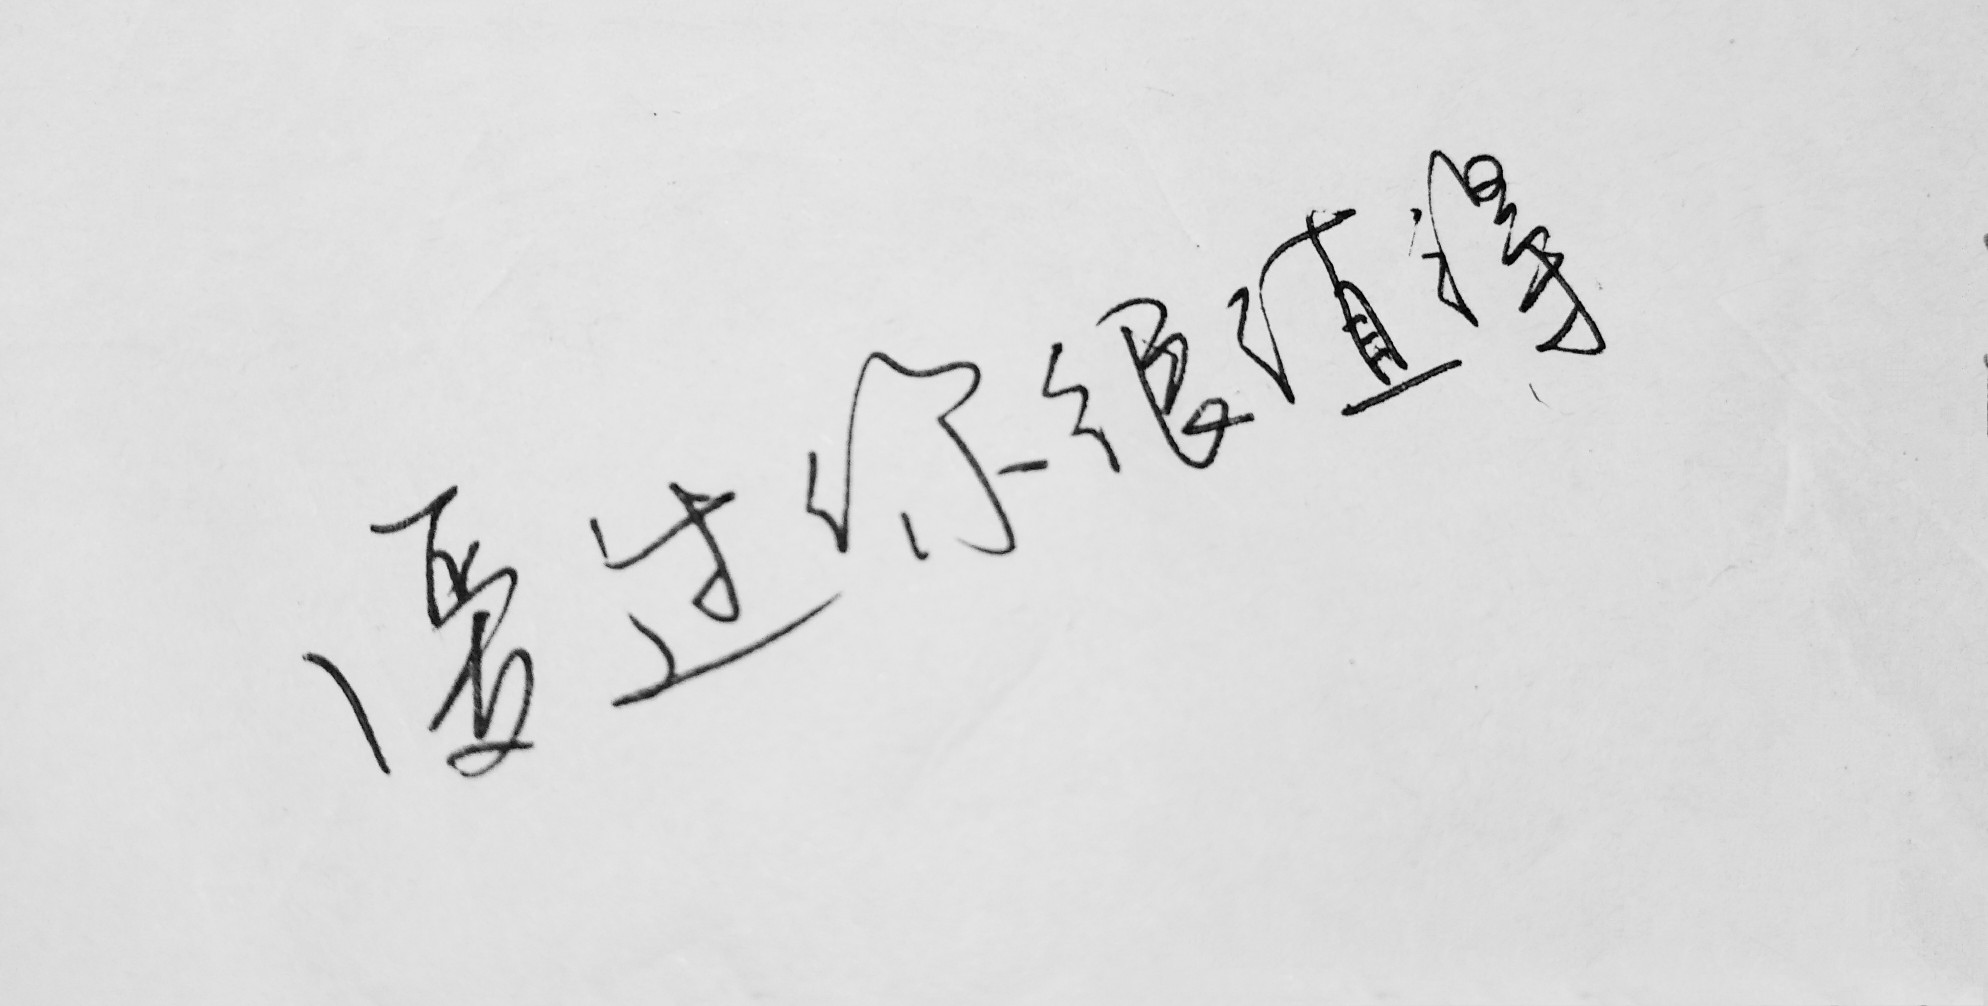 爱过你很值得